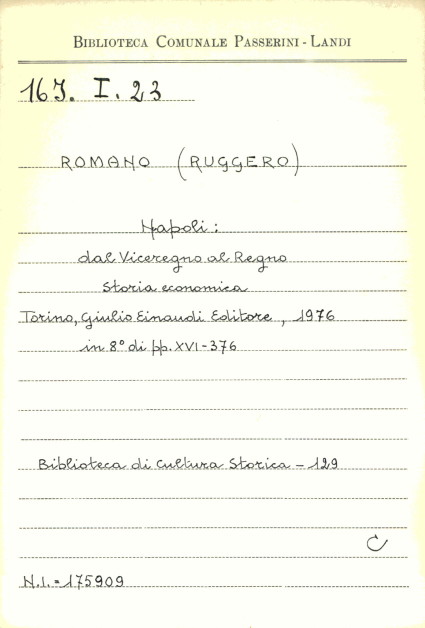 BIBLIOTECA COMUNALE PASSERINI - LANDI
16J. I. 23
ROMANO (RUGGERO)
Napoli :
dal Viceregno al Regno
Storia economica
Torino, Giulio Einaudi Editore, 1976
in 8° di pp. XVI-376
Biblioteca di Cultura Storica - 129
C
N.I. = 175909